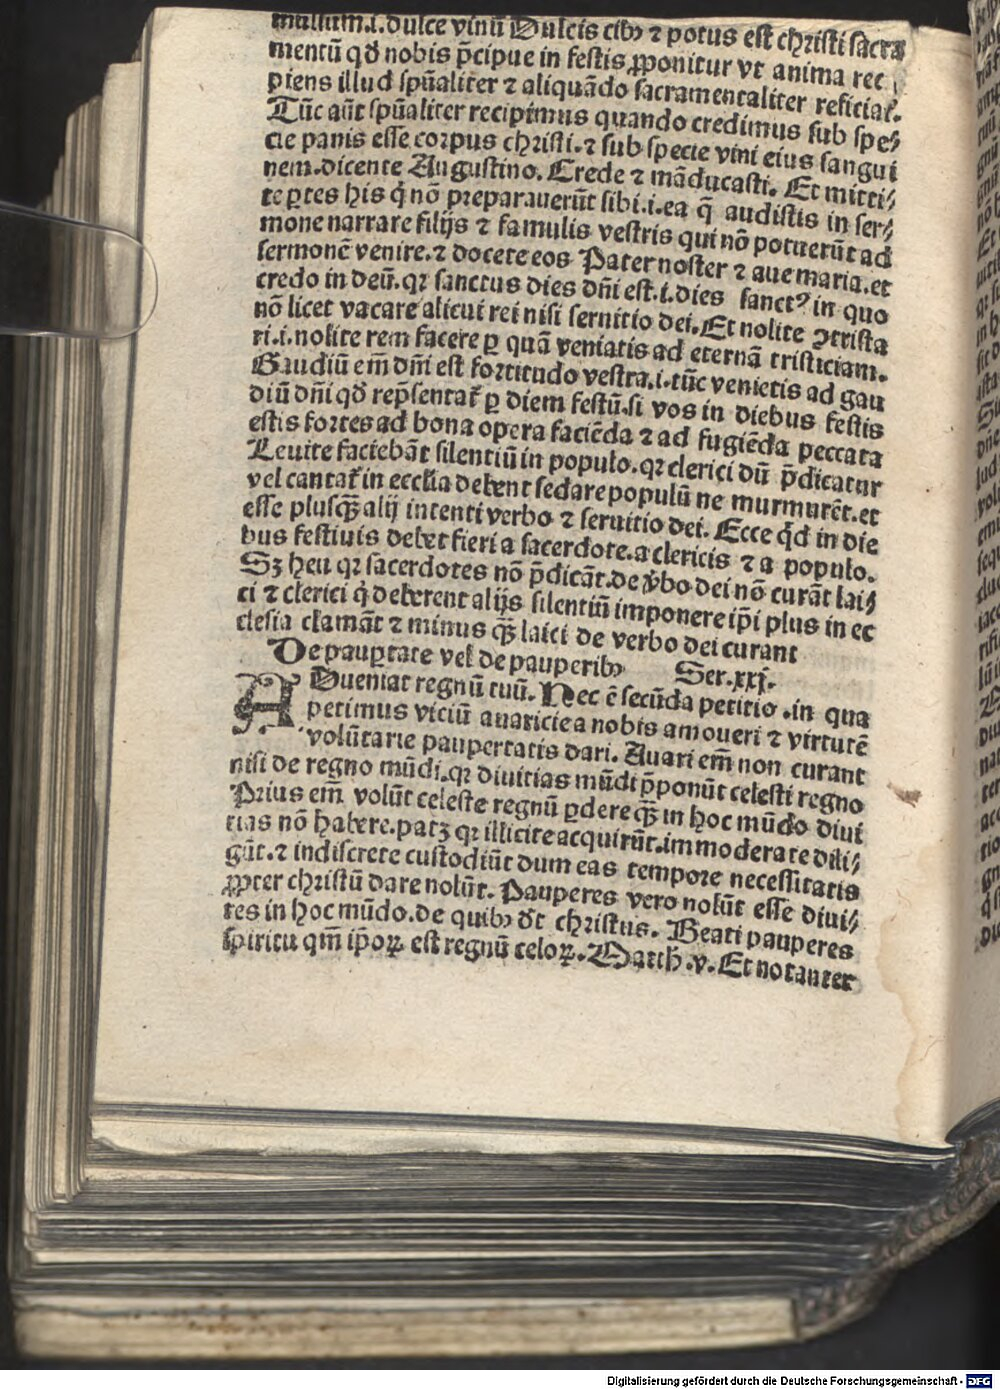 mulsum.i.dulce vinū Dulcis cibꝰ ⁊ potus est christi sacra
mentū qd̄ nobis p̄cipue in festis ꝓponitur vt anima rec
piens illud spūaliter ⁊ aliquādo sacramentaliter reficiat̄.
Tūc aūt spūaliter recipimus quando credimus sub spe⸗
cie panis esse corpus christi.⁊ sub specie vini eius sangui
nem.dicente Augustino. Crede ⁊ māducasti. Et mitti⸗
te ꝑtes his q̇ nō preparauerūt sibi.i.ea q̄ audistis in ser⸗
mone narrare filijs ⁊ famulis vestris qui nō potuerūt ad
sermonē venire.⁊ docete eos Pater noster ⁊ aue maria.et
credo in deū.qꝛ sanctus dies dn̄i est.i.dies sanctꝰ in quo
nō licet vacare alicui rei nisi seruitio dei. Et nolite ꝯtrista
ri.i.nolite rem facere ꝑ quā veniatis ad eternā tristiciam.
Gaudiū em̄ dn̄i est fortitudo vestra.i.tūc venietis ad gau
diū dn̄i qd̄ rep̄sentat̄ ꝑ diem festū.si vos in diebus festis
estis fortes ad bona opera faciēda ⁊ ad fugiēda peccata
Leuite faciebāt silentiū in populo.qꝛ clerici dū p̄dicatur
vel cantat̄ in ecclīa debent sedare populū ne murmurēt.et
esse plusq̄ȝ alij intenti verbo ⁊ seruitio dei. Ecce qd̄ in die
bus festiuis debet fieri a sacerdote.a clericis ⁊ a populo.
Sȝ heu qꝛ sacerdotes nō p̄dicāt.de v̓bo dei nō curāt lai⸗
ci ⁊ clerici q̇ deberent alijs silentiū imponere ip̄i plus in ec
clesia clamāt ⁊ minus q̄ȝ laici de verbo dei curant
De pauꝑtate vel de pauperibꝰ Ser.xxj.
ADueniat regnū tuū. Nec ē secūda petitio .in qua
petimus viciū auaricie a nobis amoueri ⁊ virtutē
volūtarie paupertatis dari. Auari em̄ non curant
nisi de regno mūdi.qꝛ diuitias mūdi p̄ponūt celesti regno
Prius em̄ volūt celeste regnū ꝑdere q̄ȝ in hoc mūdo diui
tias nō habere.patȝ qꝛ illicite acquirūt.immoderate dili⸗
gūt.⁊ indiscrete custodiūt dum eas tempore necessitatis
ꝓpter christū dare nolūt. Pauperes vero nolūt esse diui⸗
tes in hoc mūdo.de quibꝰ dt̄ christus. Beati pauperes
spiritu qm̄ ip̄oꝝ est regnū celoꝝ. Matth.v. Et notanter
Digitalisierung gefördert durch die Deutsche Forschungsgemeinschaft - DFG